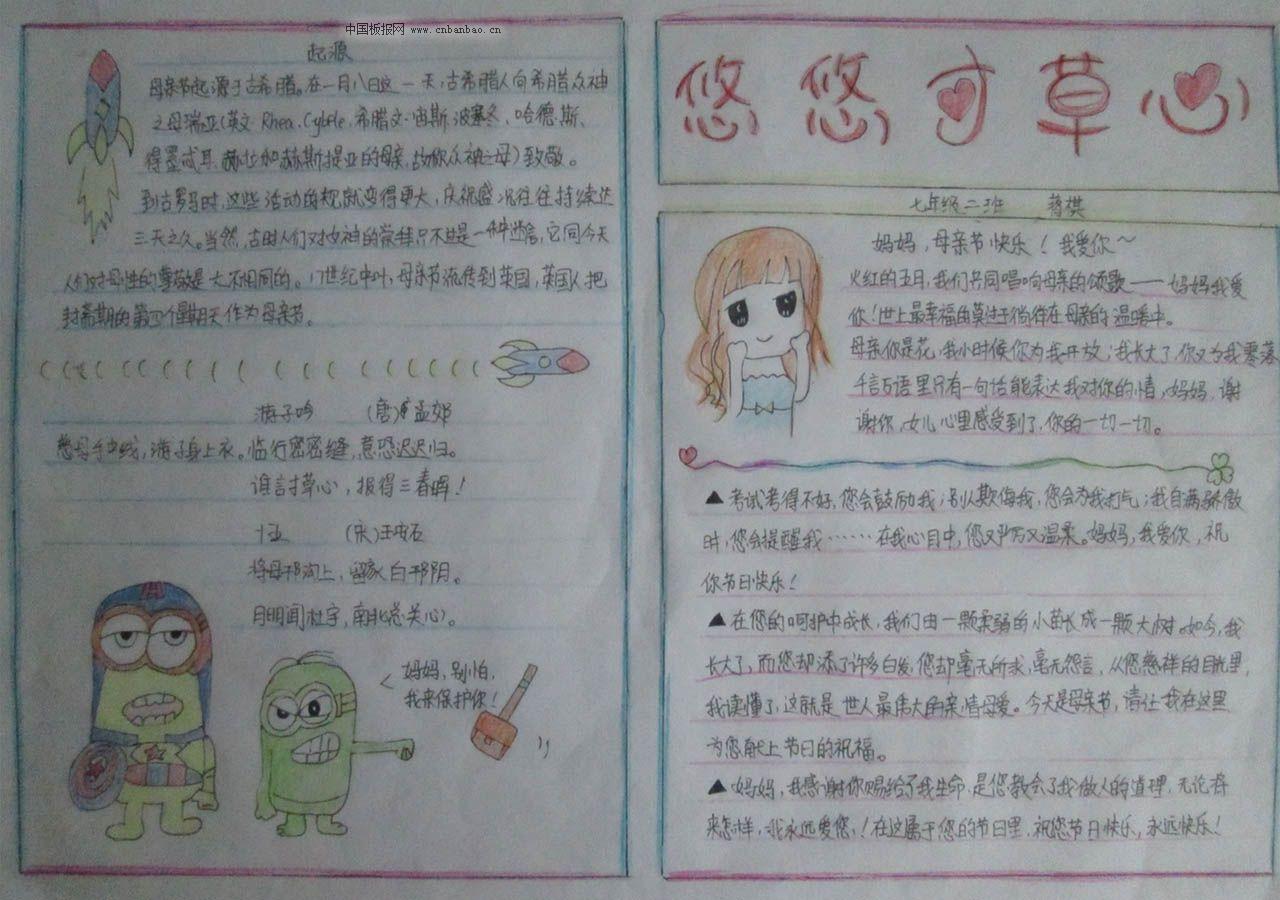 中国板报网 www.cnbanbao.cn
起源
母亲节起源于古希腊。在一月八日这一天,古希腊人向希腊众神
之母瑞亚(英文 Rhea、Cybele,希腊文:宙斯、波塞冬、哈德斯、
得墨忒耳、赫拉和赫斯提亚的母亲,故称众神之母)致敬。
到古罗马时,这些活动的规就变得更大,庆祝盛况往往持续达
三天之久。当然,古时人们对女神的崇拜只不过是一种迷信,它同今天
人们对母性的尊敬是大不相同的。17世纪中叶,母亲节流传到英国,英国人把
封斋期的第四个星期天作为母亲节。
游子吟 (唐)孟郊
慈母手中线,游子身上衣。临行密密缝,意恐迟迟归。
谁言寸草心,报得三春晖!
十五 (宋)王安石
将母邗沟上,留家白邗阴。
月明闻杜宇,南北总关心。
妈妈,别怕,
我来保护你!
悠悠寸草心
七年级二班 棋
妈妈,母亲节快乐!我爱你~
火红的五月,我们共同唱响母亲的颂歌——妈妈我爱
你!世上最幸福的莫过于徜徉在母亲的温暖中。
母亲你是花,我小时候你为我开放;我长大了,你又为我零落
千言万语里只有一句话能表达我对你的情,妈妈,谢
谢你,女儿心里感受到了,你的一切一切。
▲考试考得不好,您会鼓励我;别人欺侮我,您会为我打气;我自满骄傲
时,您会提醒我……在我心目中,您又严厉又温柔。妈妈,我爱你,祝
你节日快乐!
▲在您的呵护中成长,我们由一颗柔弱的小苗长成一颗大树。如今,我
长大了,而您却添了许多白发,您却毫无所求,毫无怨言,从您慈祥的目光里,
我读懂了,这就是世人最伟大的亲情母爱。今天是母亲节,请让我在这里
为您献上节日的祝福。
▲妈妈,我感谢你赐给了我生命,是您教会了我做人的道理,无论将
来怎样,我永远爱您,!在这属于您的节日里,祝您节日快乐,永远快乐!